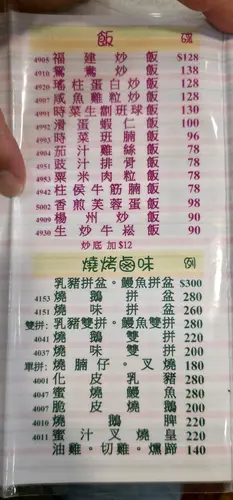 飯 碟
4905 福建炒飯 $128
4910 鴛鴦炒飯 138
4920 瑤柱蛋白炒飯 128
4907 咸魚雞粒炒飯 128
4991 時菜生劏班球飯 130
4992 滑蛋蝦仁飯 100
4993 時菜班腩飯 96
4904 茄汁雞絲飯 78
4951 豉汁排骨飯 78
4953 粟米肉粒飯 78
4942 柱侯牛筋腩飯 78
5002 香煎芙蓉蛋飯 90
4909 楊州炒飯 90
4930 生炒牛崧飯 90
炒底 加 $12
燒烤鹵味 例
乳豬拼盆·鰻魚拼盆 $300
4153 燒鵝拼盆 280
4151 燒味拼盆 260
雙拼: 乳豬雙拼·鰻魚雙拼 280
4041 燒鵝雙拼 220
4037 燒味雙拼 200
單拼: 燒腩仔·叉燒 180
4001 化皮乳豬 280
4047 蜜燒鰻魚 280
4007 脆皮燒鵝 200
4010 燒鵝脾 220
4011 蜜汁叉燒皇 220
油雞·切雞·燻蹄 140